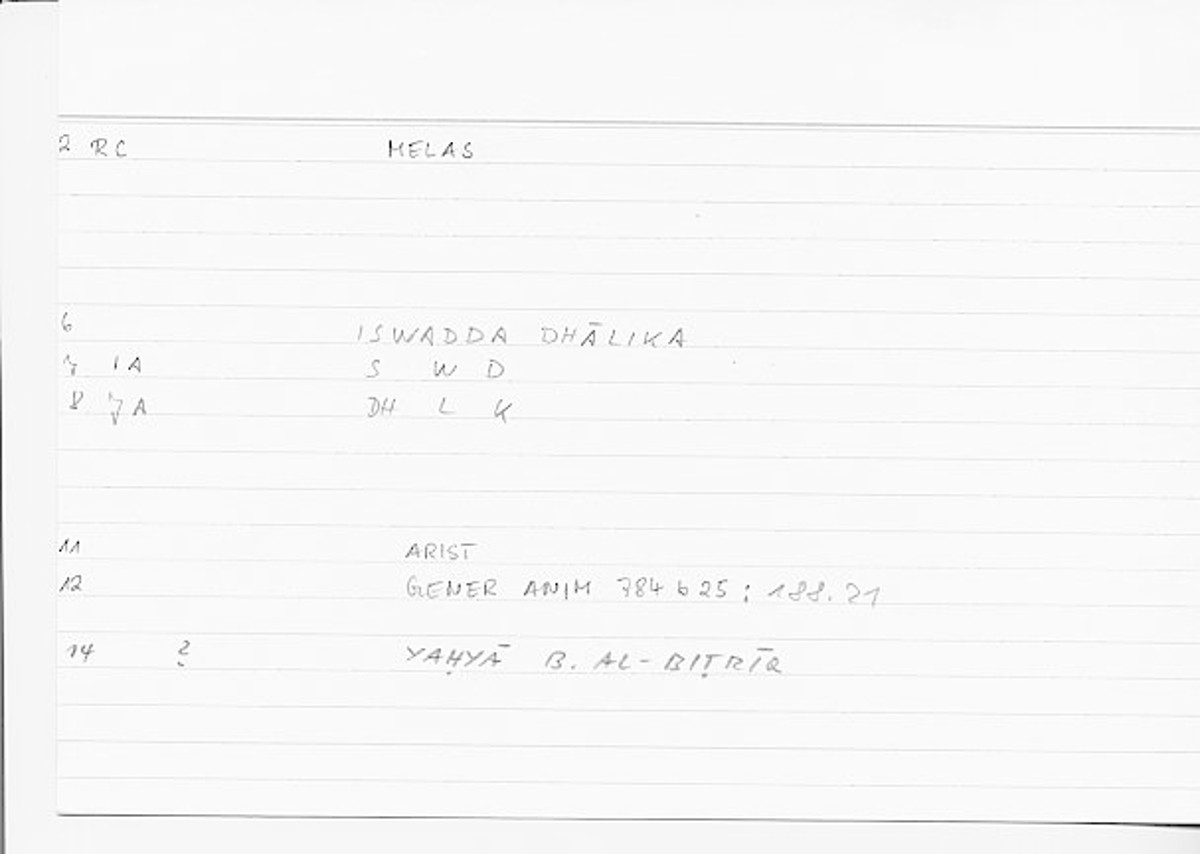 2 RC MELAS
6 ISWADDA DHĀLIKA
7 1A S W D
8 7A DH L K
11 ARIST
12 GENER ANIM 784 b 25 : 188.21
14 ? YAḤYĀ B. AL-BIṬRĪQ